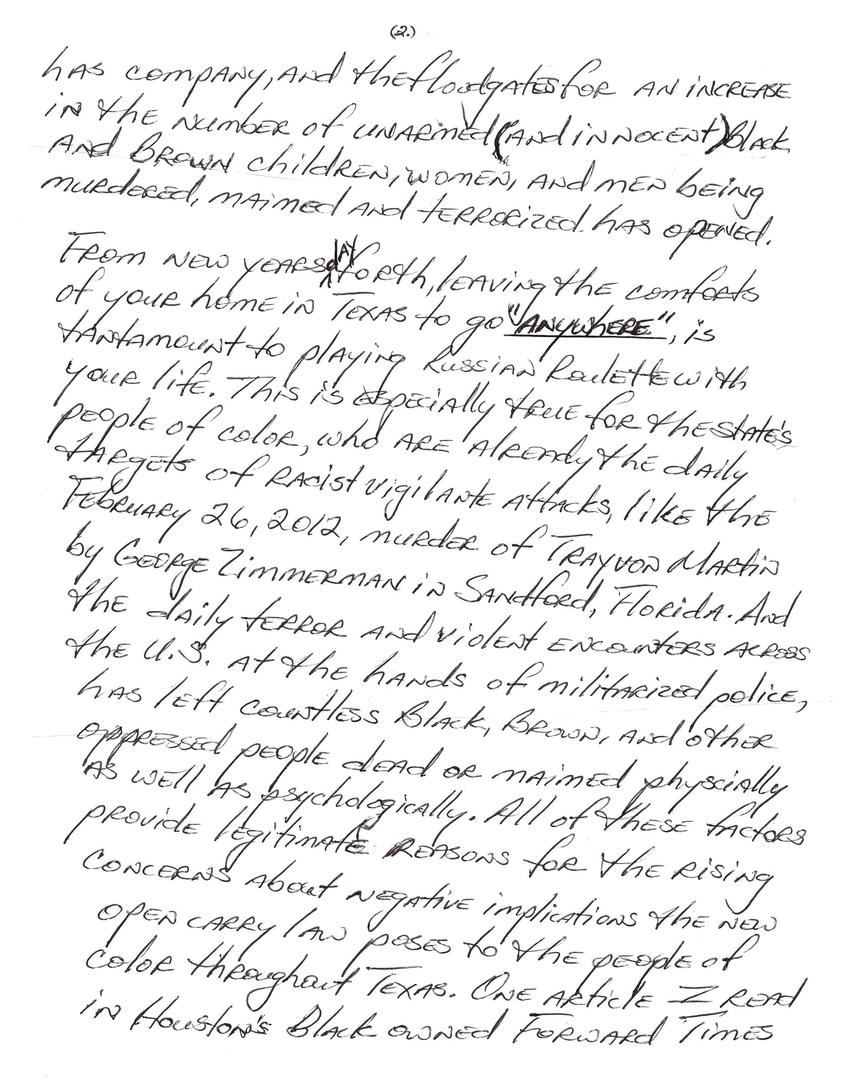 (2.)
has company, and the floodgates for an increase
in the number of unarmed (and innocent) Black
and Brown children, women, and men being
murdered, maimed and terrorized has opened.
From New Years day forth, leaving the comforts
of your home in Texas to go "anywhere", is
tantamount to playing Russian Roulette with
your life. This is especially true for the state's
people of color, who are already the daily
targets of racist vigilante attacks, like the
February 26, 2012, murder of Trayvon Martin
by George Zimmerman in Sandford, Florida. And
the daily terror and violent encounters across
the U.S. at the hands of militarized police,
has left countless Black, Brown, and other
oppressed people dead or maimed physcially
as well as psychologically. All of these factors
provide legitimate reasons for the rising
concerns about negative implications the new
open carry law poses to the people of
color throughout Texas. One article I read
in Houston's Black owned Forward Times